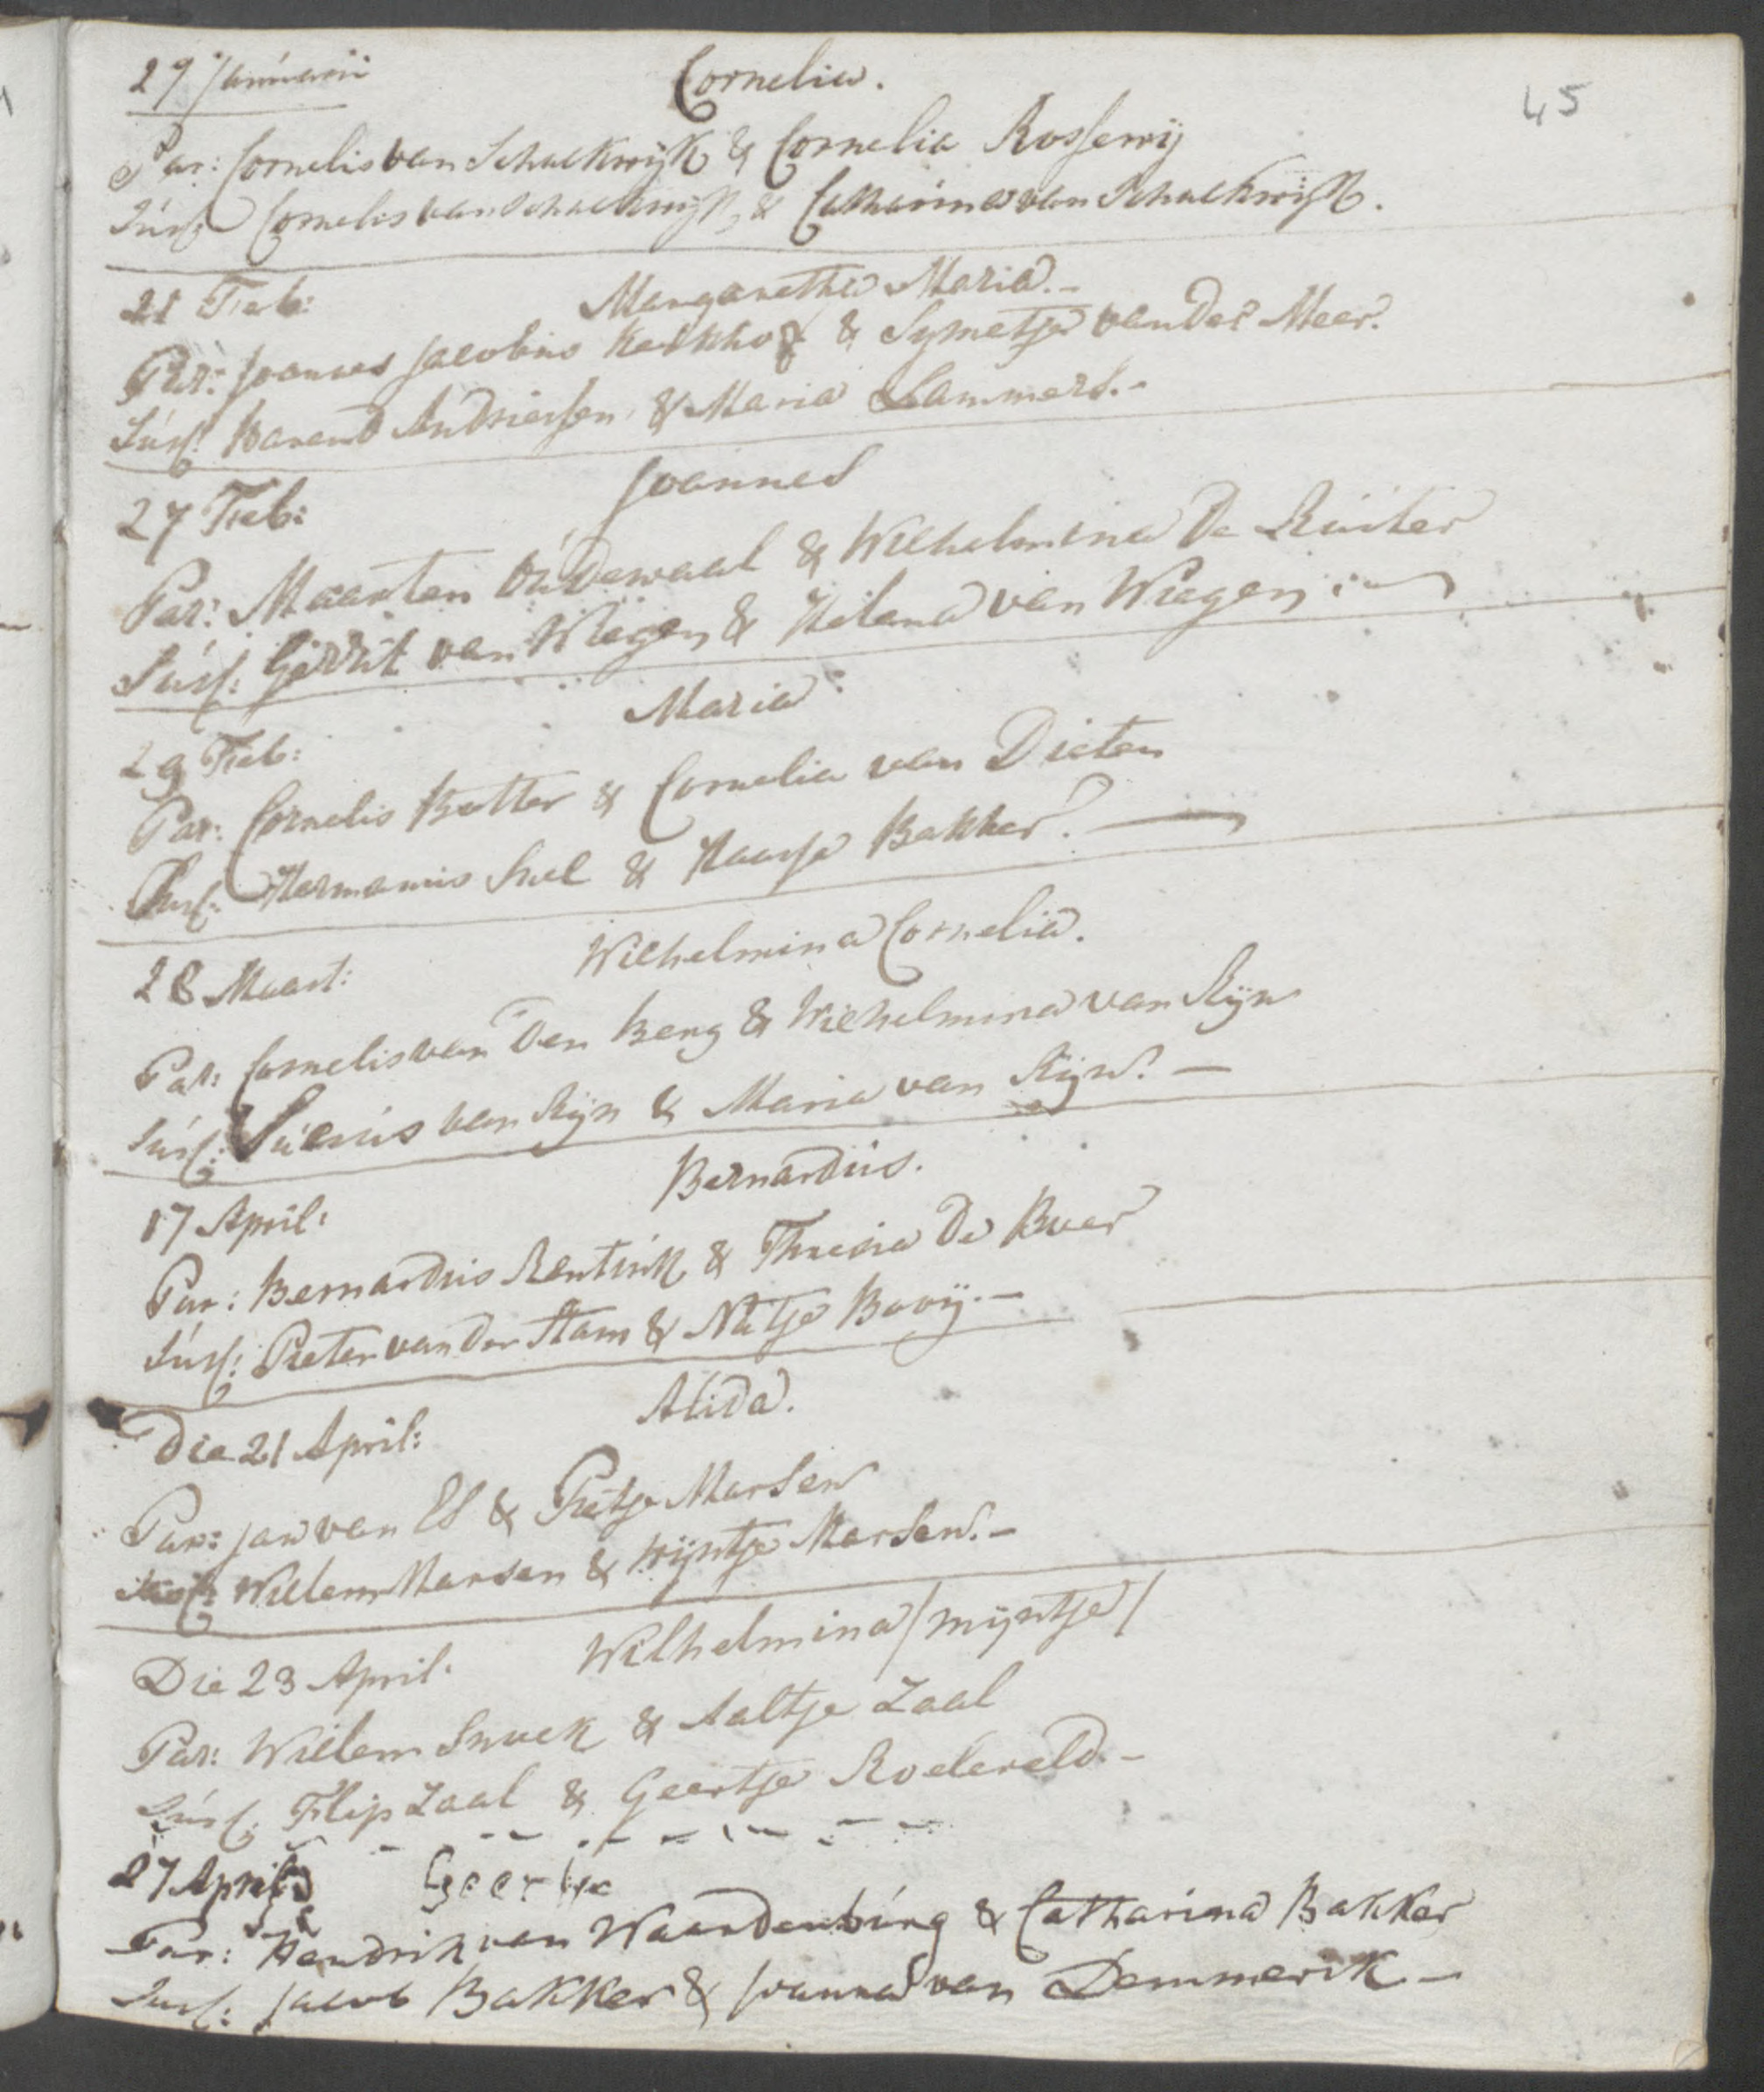 29 Januarii Cornelia.
45
Par: Cornelis van Schaekwijk & Cornelia Rosserij
Sus: Cornelis van Schaekwijk, & Catharina van Schaekwijk.
21 Feb: Margaretha Maria.-
Par: Joannes Jacobus Kerkhof & Symetje van der Meer.
Susc: Barend Andriessen & Maria Lammers.-
27 Feb: Joannes
Par: Maarten Oudewaal & Wilhelmina De Ruiter
Susc: Gerrit van Wiegen & Helena van Wiegen
29 Feb: Maria
Par: Cornelis Botter & Cornelia van Dieten
Susc: Hermanus Snel & Kaatje Bakker.
28 Maart: Wilhelmina Cornelia.
Par: Cornelis van Den Berg & Wilhelmina van Rijn
Susc: van Rijn & Maria van Rijn. -
17 April: Bernardus.
Par: Bernardus Rentink & Theresia De Boer
Susc: Pieter van der Stam & Naatje Booij.-
Die 21 April: Alida.
Par: Jan van Es & Pietje Marsen
Susc: Willem Marsen & Wijntje Marsen.-
Die 23 April. Wilhelmina /mijntje/
Par: Willem Snoek & Aaltje Zaal
Susc: Flip Zaal & Geertje Roeleveld.-
27 April Geertje
Par: Hendrik van Waardenburg & Catharina Bakker
Susc: Jacob Bakker & Joanna van Demmerik -